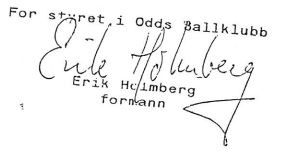 For styret i Odds Ballklubb
Erik Holmberg
Erik Holmberg
formann